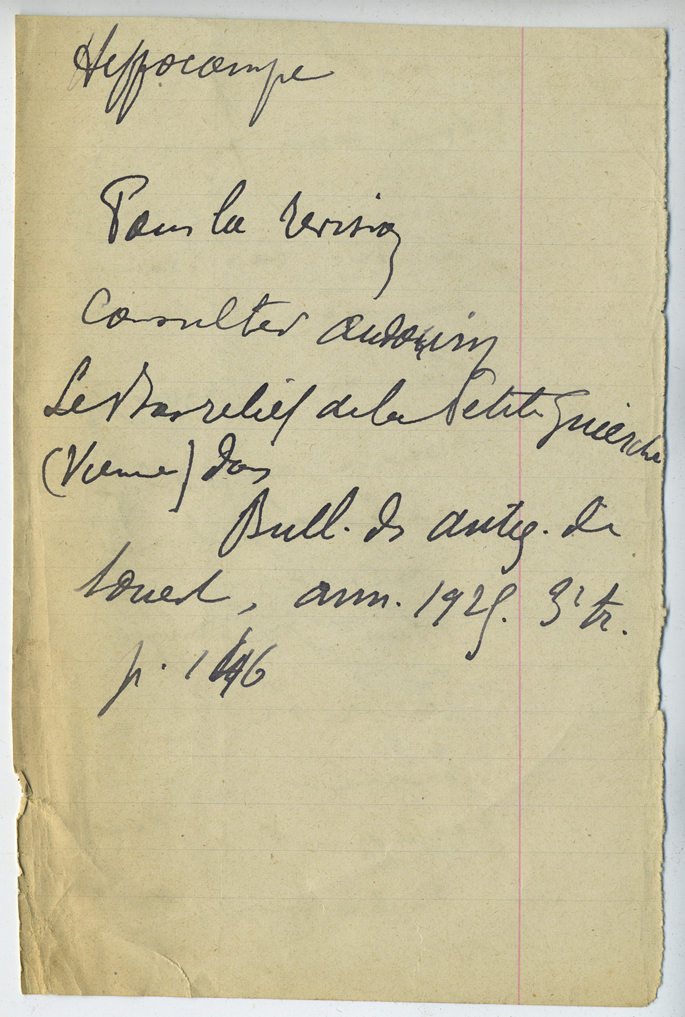 Hippocampe
Pour la revision
Consulter Audouin
Le Bas relief de la Petite Guierche
(Vienne) dans
Bull. ds antiq. de
l'ouest, ann. 1925. 3e tr.
p. 146